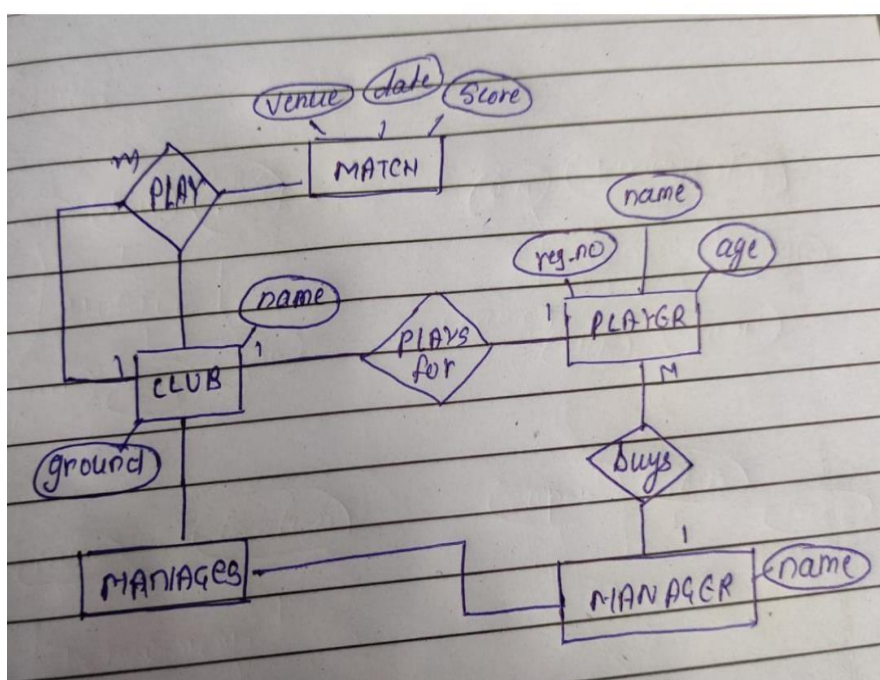 venue date Score
M
PLAY
MATCH
name
reg.no
age
name
1
PLAYER
PLAYS
for
1
1
CLUB
M
ground
buys
1
MANAGES
MANAGER
name